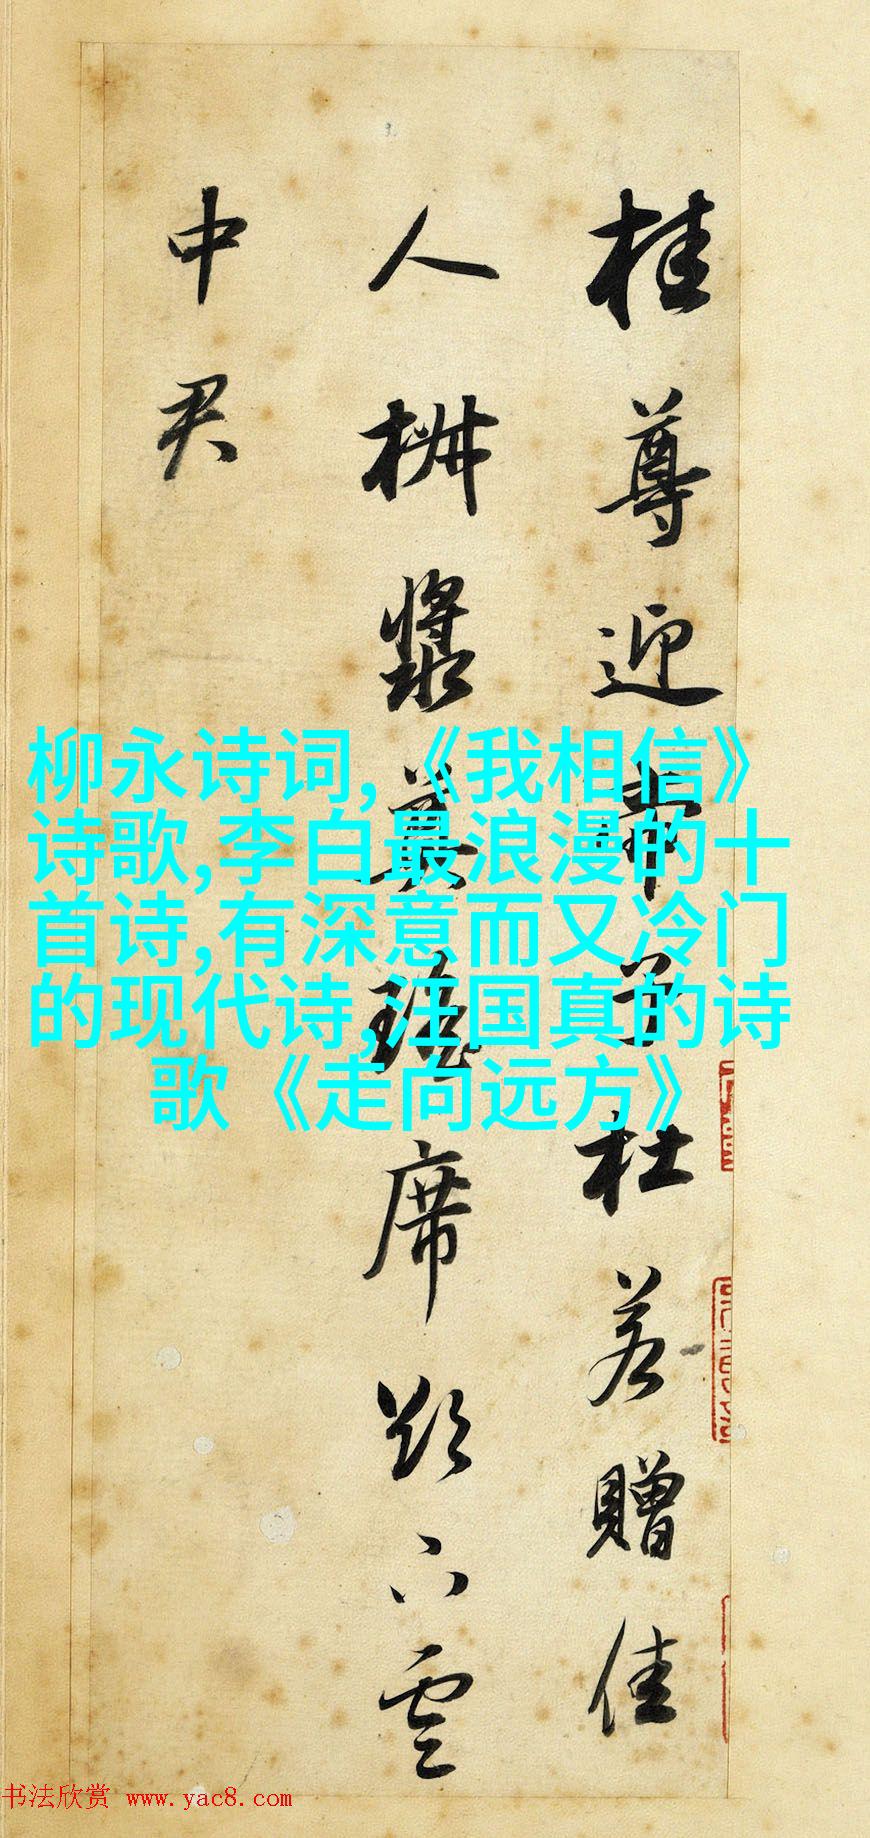 桂尊迎帝子杜若贈佳
人椒漿奠瑤席欲下雲
中君
柳永诗词,《我相信》
诗歌,李白最浪漫的十
首诗,有深意而又冷门
的现代诗,汪国真的诗
歌《走向远方》
书法欣赏 www.yac8.com